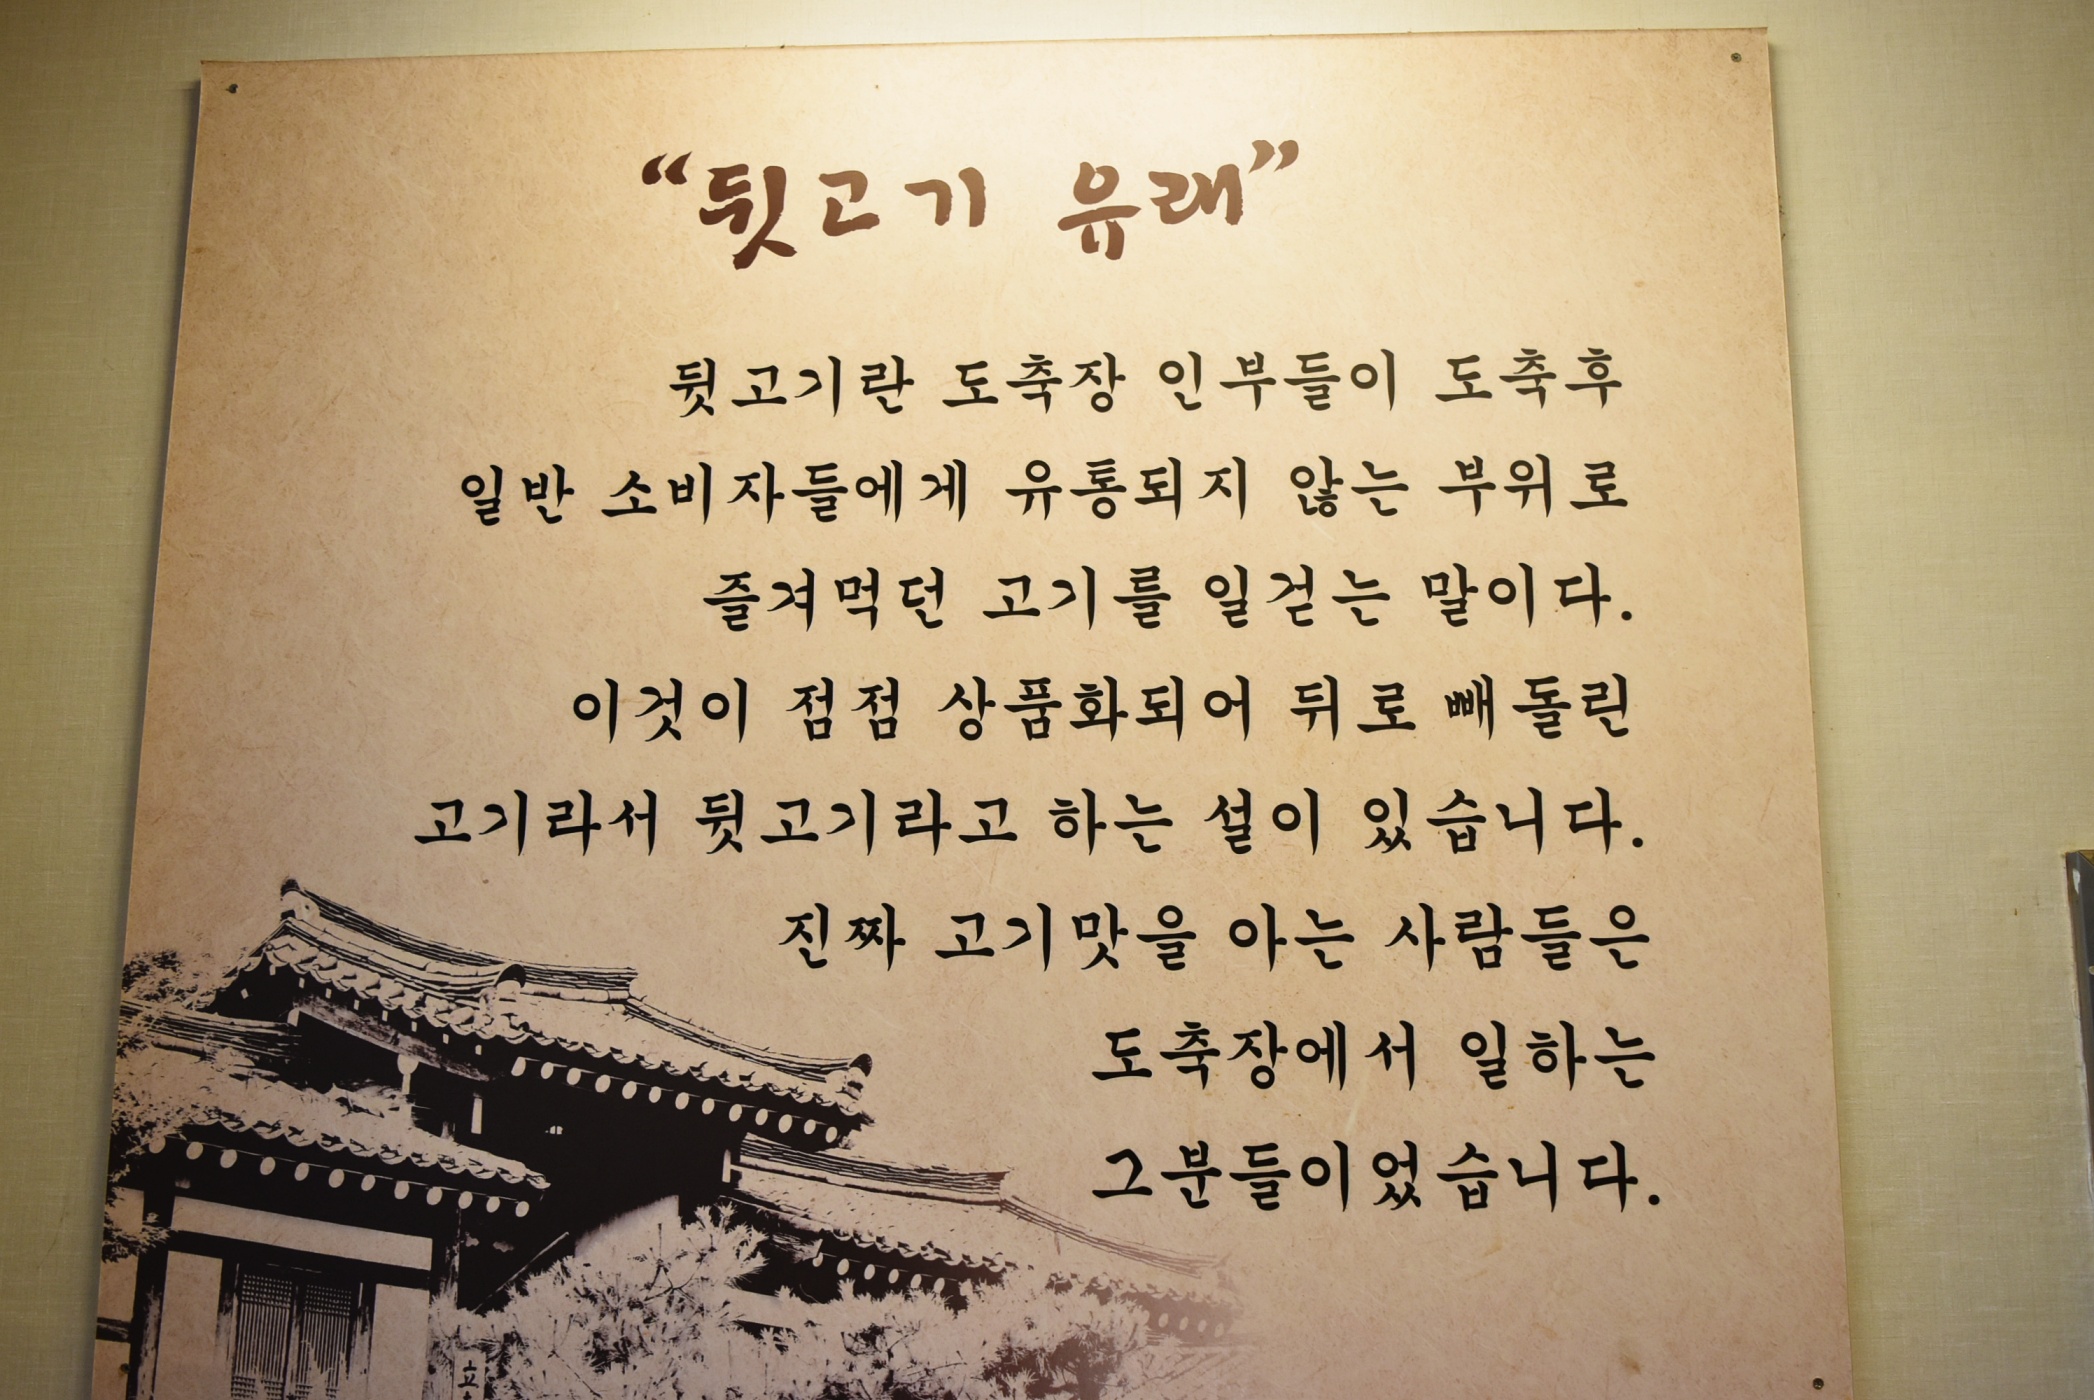 “뒷고기 유래”
뒷고기란 도축장 인부들이 도축후
일반 소비자들에게 유통되지 않는 부위로
즐겨먹던 고기를 일걷는 말이다.
이것이 점점 상품화되어 뒤로 빼돌린
고기라서 뒷고기라고 하는 설이 있습니다.
진짜 고기맛을 아는 사람들은
도축장에서 일하는
그분들이었습니다.